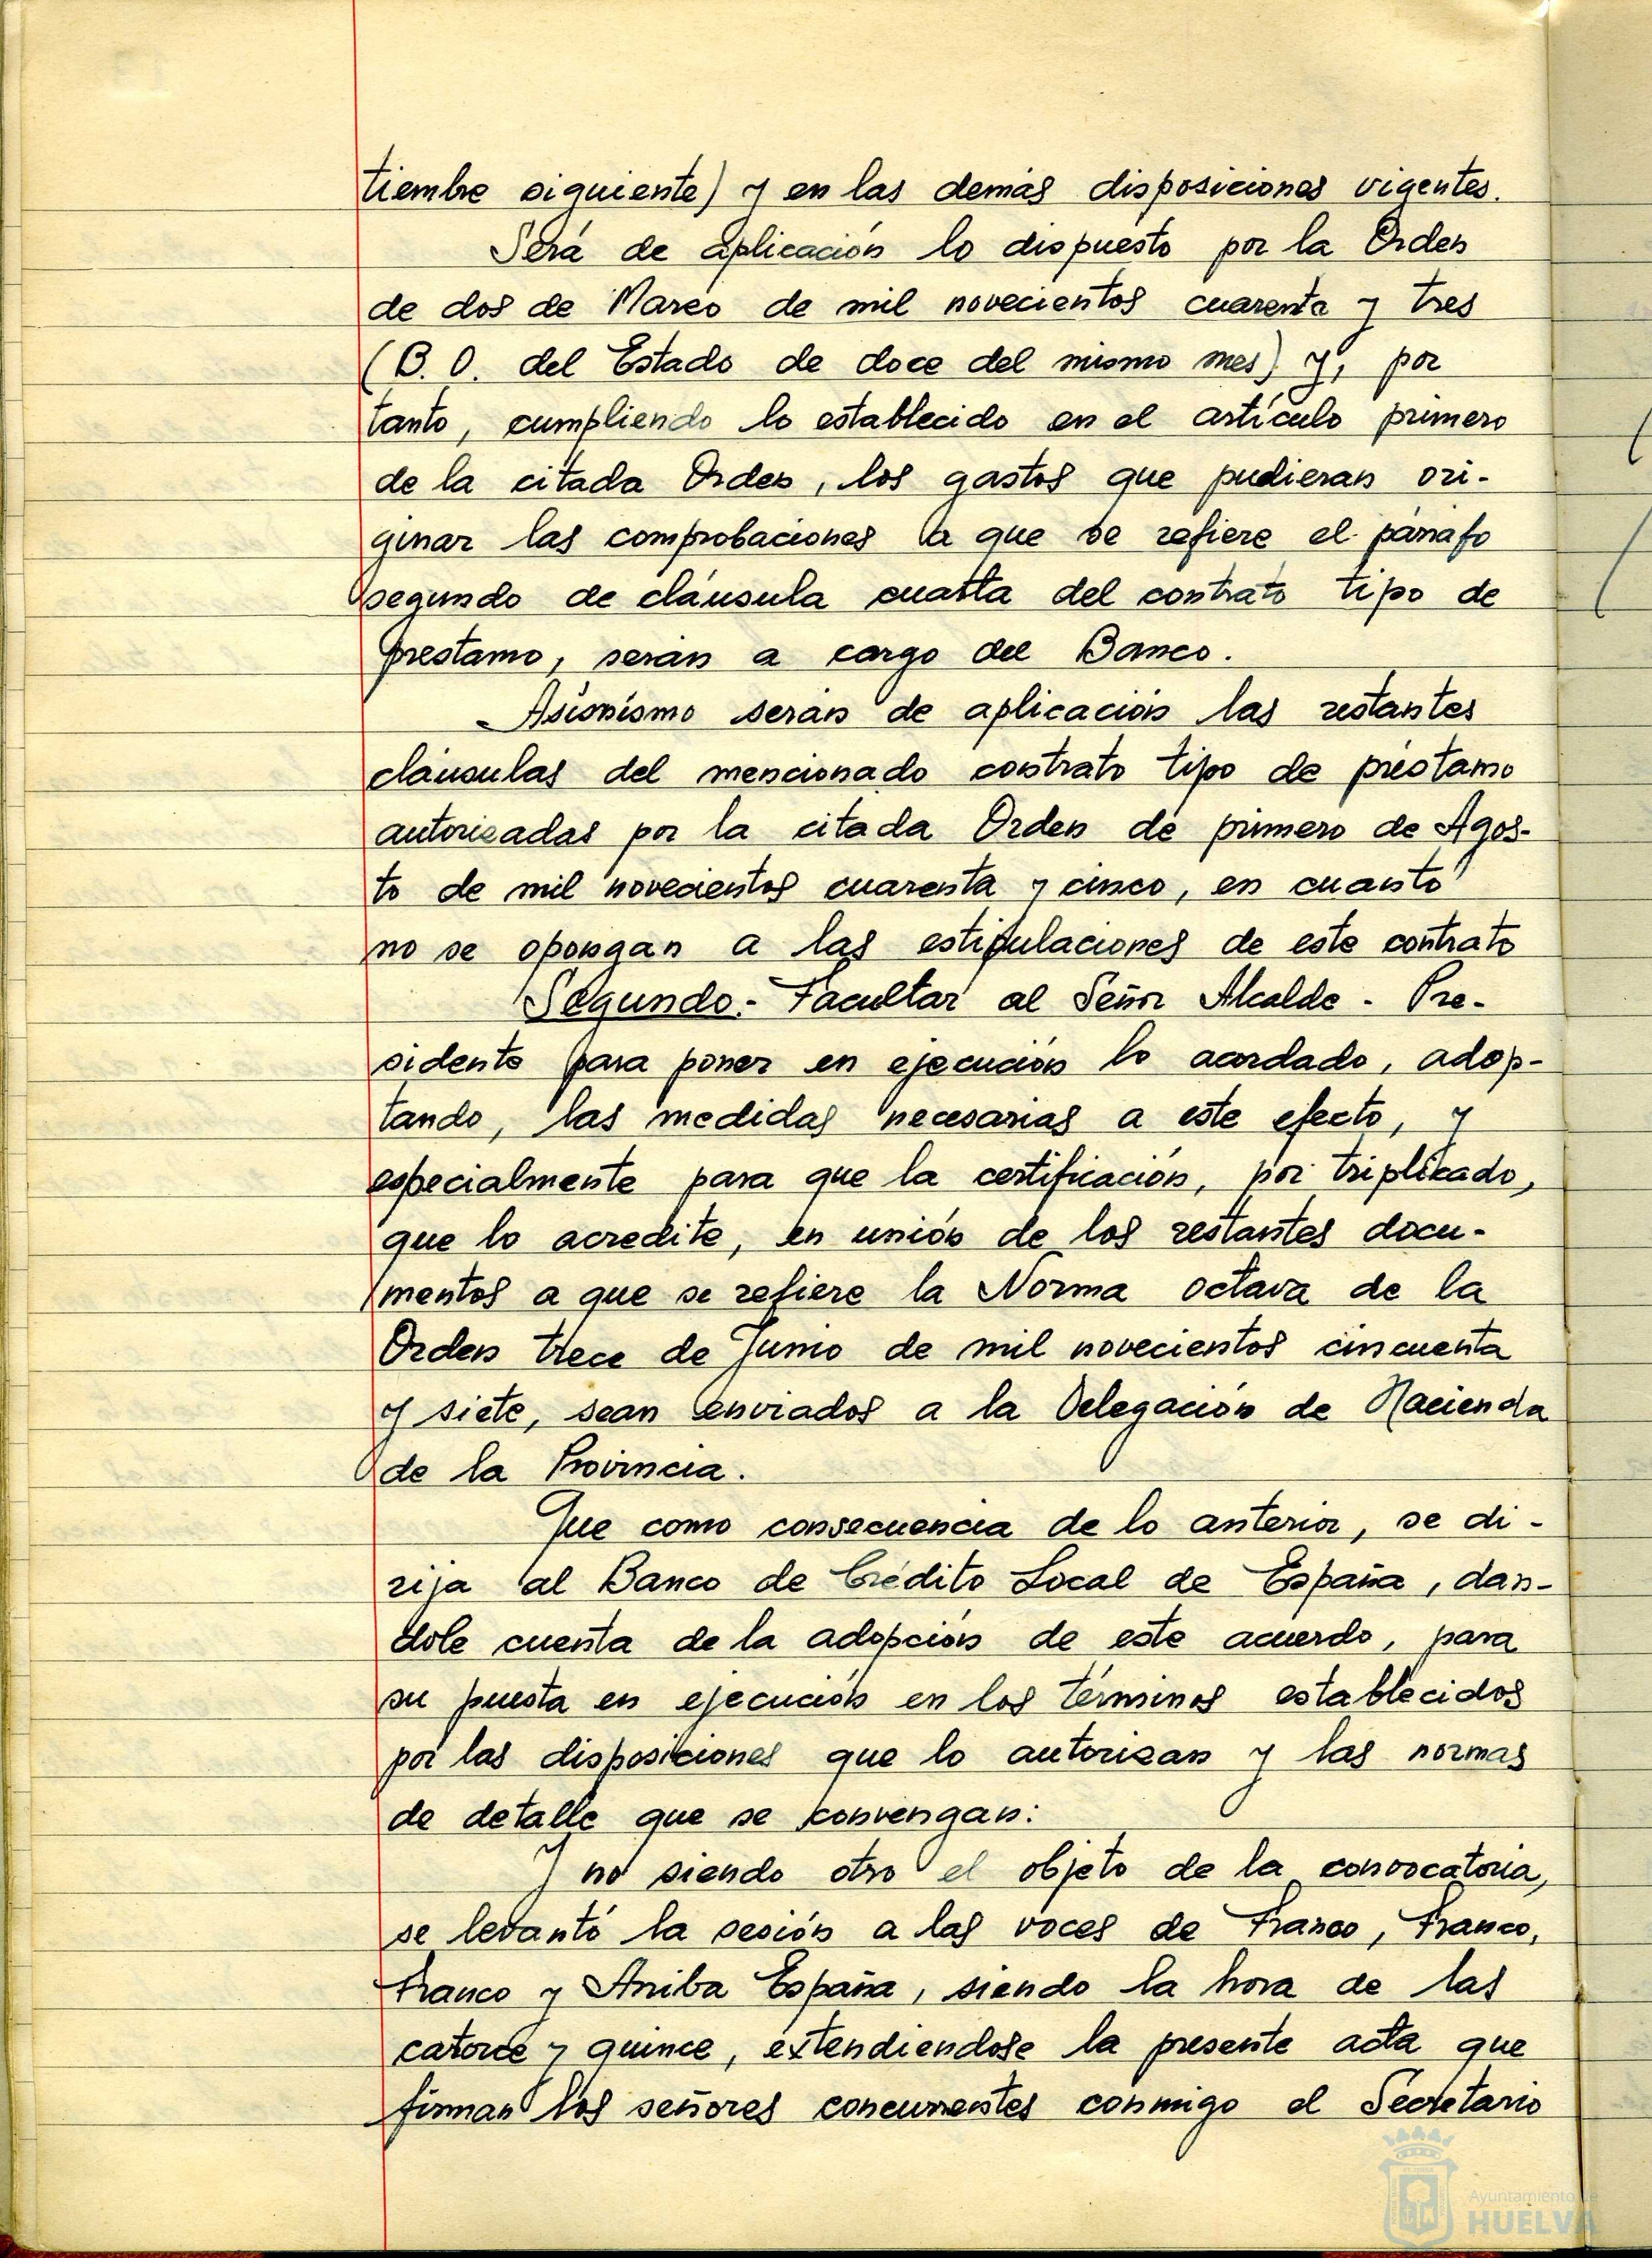 tiembre siguiente) y en las demás disposiciones vigentes.
Será de aplicación lo dispuesto por la Orden
de dos de Marzo de mil novecientos cuarenta y tres
(B. O. del Estado de doce del mismo mes) y, por
tanto, cumpliendo lo establecido en el artículo primero
de la citada Orden, los gastos que pudieran ori-
ginar las comprobaciones a que se refiere el párrafo
segundo de cláusula cuarta del contrato tipo de
prestamo, seran a cargo del Banco.
Asimismo seran de aplicación las restantes
cláusulas del mencionado contrato tipo de préstamo
autorizadas por la citada Orden de primero de Agos-
to de mil novecientos cuarenta y cinco, en cuanto
no se opongan a las estipulaciones de este contrato
Segundo.- Facultar al Señor Alcalde - Pre-
sidente para poner en ejecución lo acordado, adop-
tando, las medidas necesarias a este efecto, y
especialmente para que la certificación, por triplicado,
que lo acredite, en unión de los restantes docu-
mentos a que se refiere la Norma octava de la
Orden trece de Junio de mil novecientos cincuenta
y siete, sean enviados a la Delegación de Hacienda
de la Provincia.
Que como consecuencia de lo anterior, se di-
rija al Banco de Crédito Local de España, dan-
dole cuenta de la adopción de este acuerdo, para
su puesta en ejecución en los términos establecidos
por las disposiciones que lo autorizan y las normas
de detalle que se convengan:
Y no siendo otro el objeto de la convocatoria,
se levantó la sesión a las voces de Franco, Franco,
Franco y Arriba España, siendo la hora de las
catorce y quince, extendiendose la presente acta que
firman los señores concurrentes conmigo el Secretario
Ayuntamiento de
HUELVA